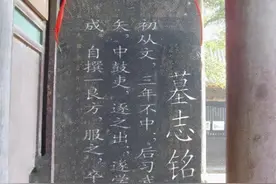 墓志铭
初从文，三年不中；后习
矢，中鼓吏，逐之出；遂学
成，自撰一良方，服之，卒